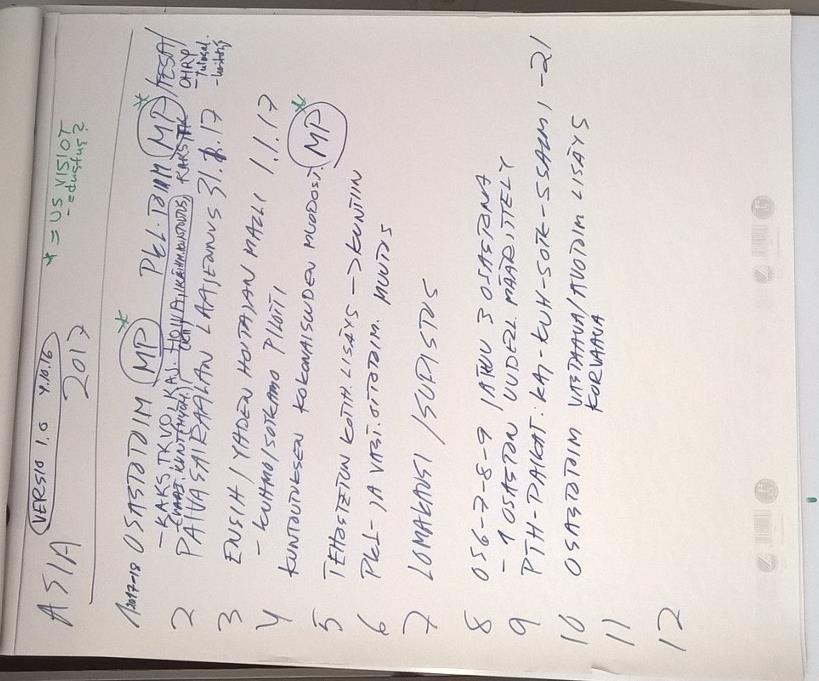 ASIA VERSIO 1.0 4.10.16
2017
* = US VISIOT
- edustus?
1 2017-18 OSASTOTOIM MP * PKL. TOIM MP * /TESA/
OHRP
- KAKS, TKVO, KAJ.
2 PÄIVÄSAIRAALAN LAAJENNUS 31.8.17
3 ENSIH/YHDEN HOITAJAN MALLI 1.1.17
4 - KUHMO/SOTKAMO PILOTTI
KUNTOUTUKSEN KOKONAISUUDEN MUODOST. MP *
5 TEHOSTETUN KOTIH. LISÄYS -> KUNTIIN
6 PKL- JA VAST.OTTOTOIM. MUUTOS
7 LOMAKAUSI /SUPISTUS
8 OS6-7-8-9 3 OSASTONA
- 1 OSASTON UUDEL. MÄÄRITTELY
9 PTH-PAIKAT: KAJ-KUH-SOTK-SSALMI -21
10 OSASTOTOIM VASTAAVA/AVOTOIM LISÄYS
KORVAAVA
11
12